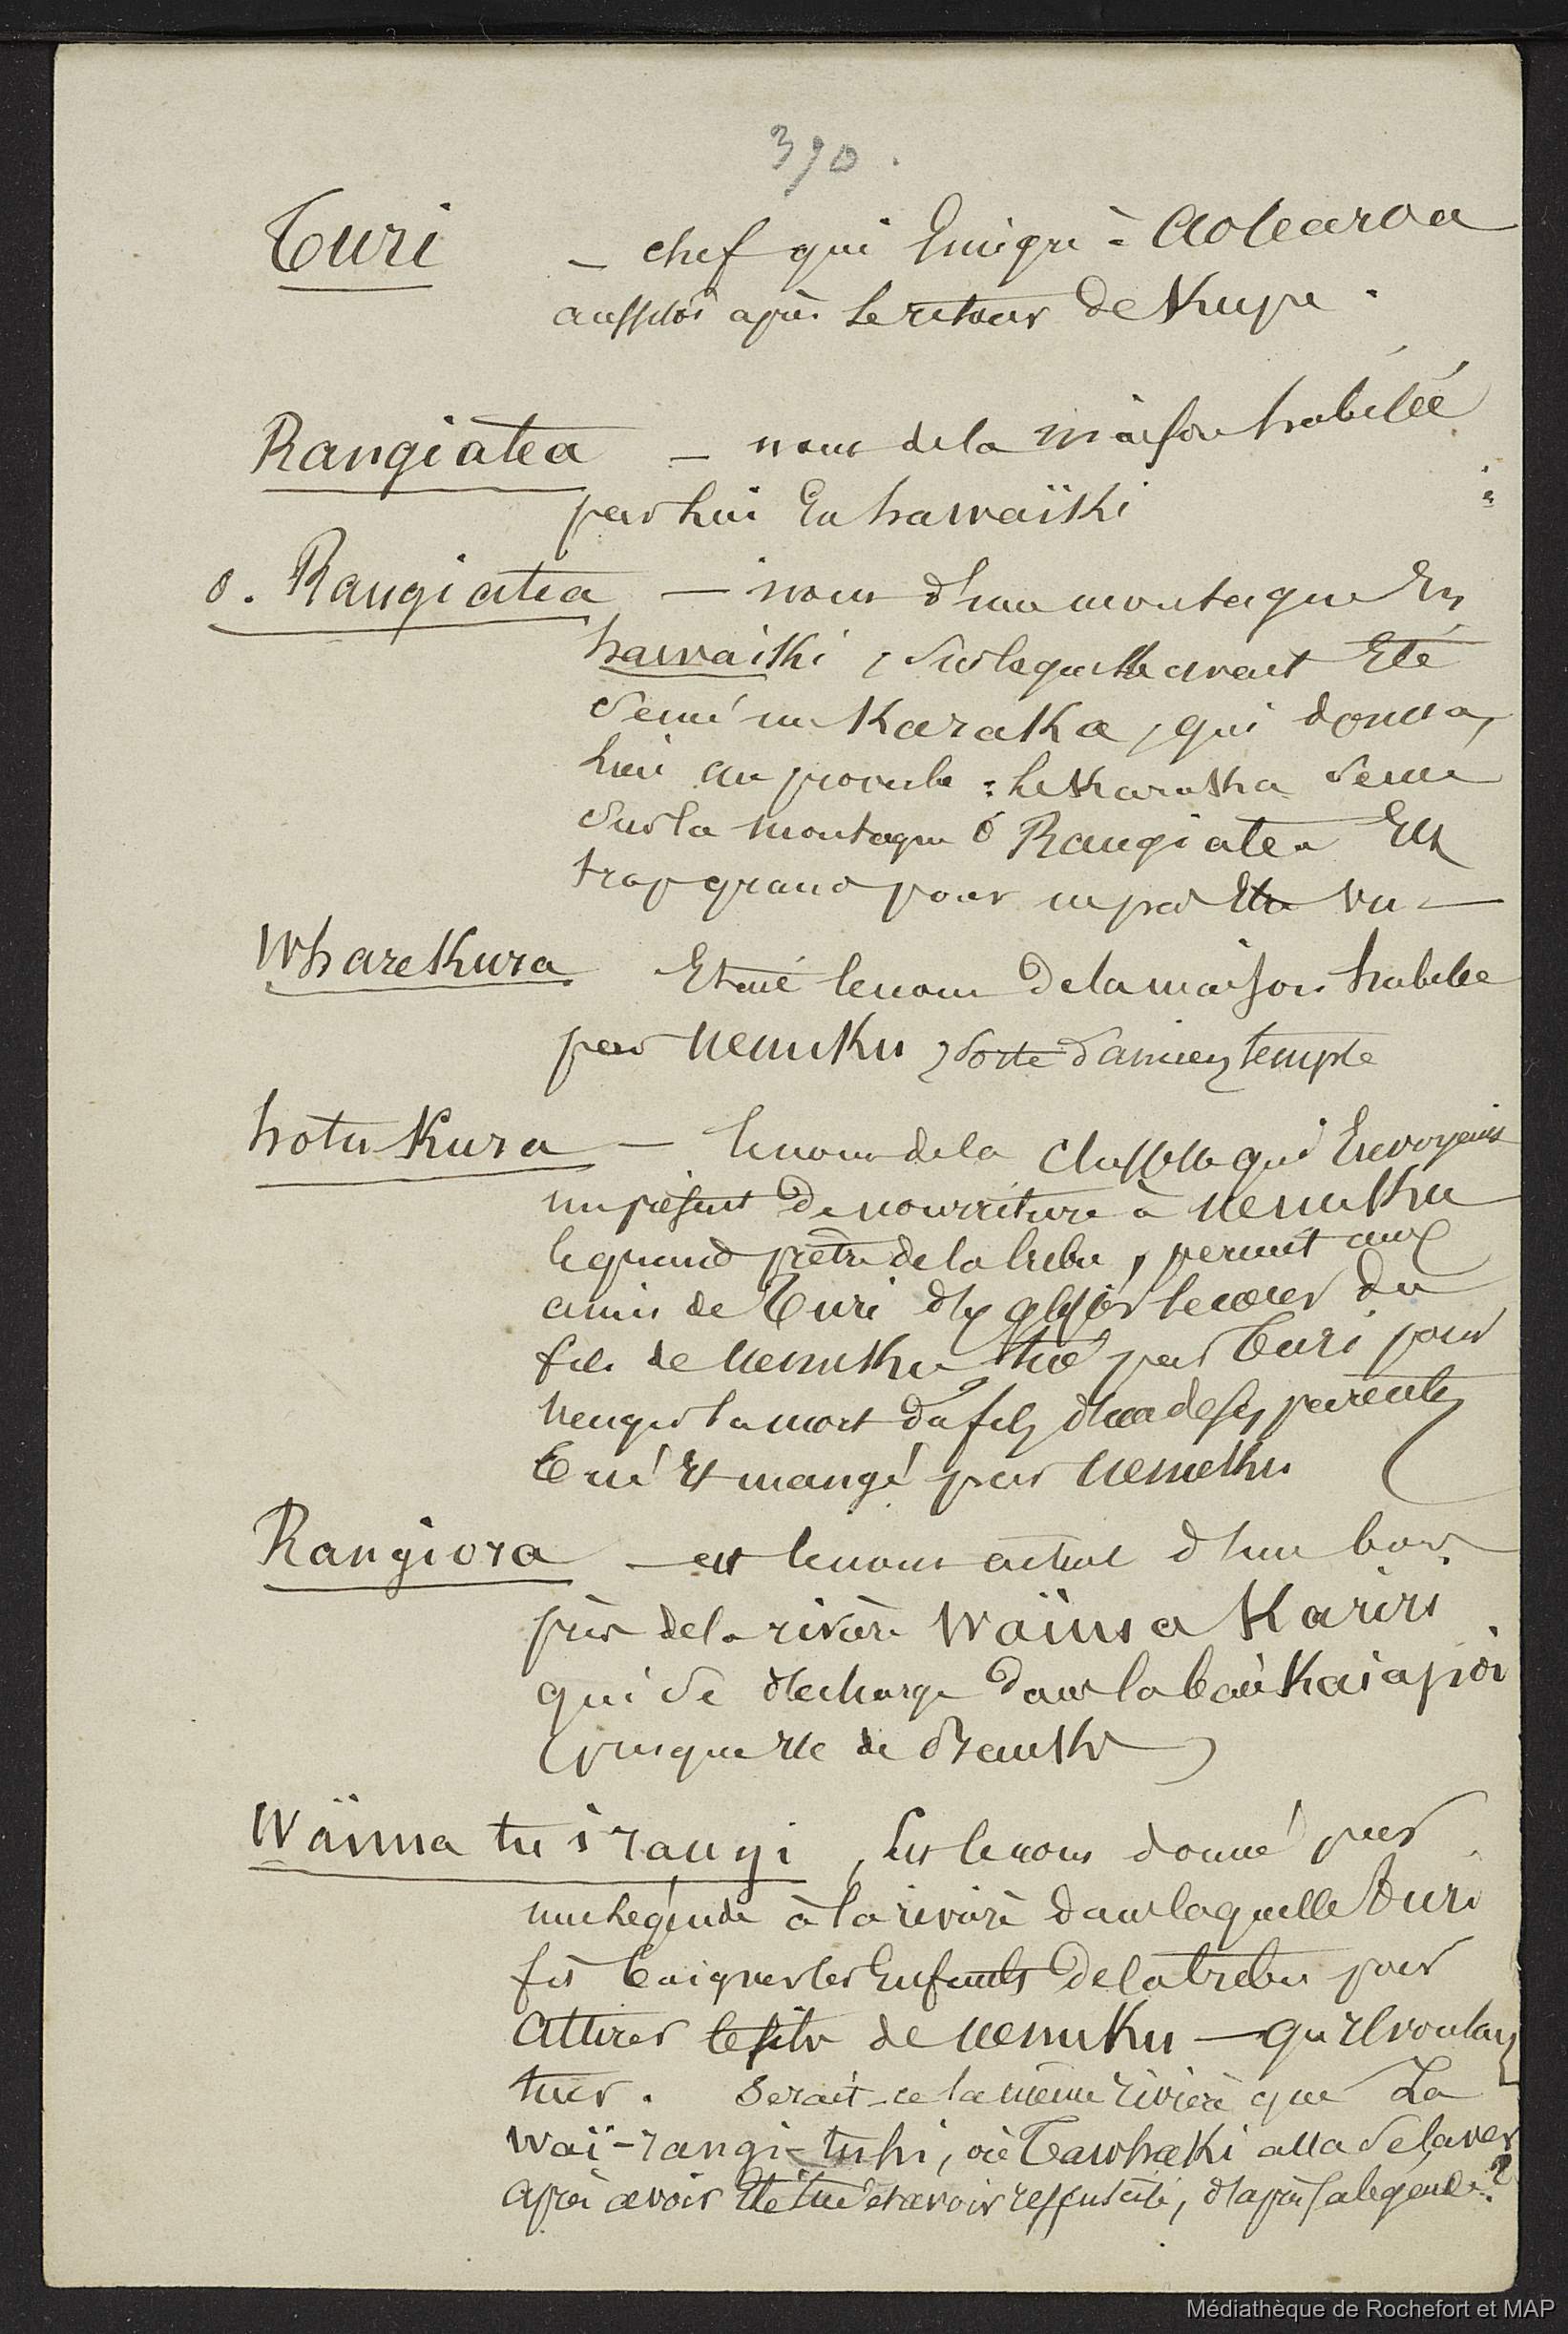 390.
Turi — chef qui Emigra à Aotearoa
aussitôt après le retour de Kupe.
Rangiatea — nom de la maison habitée
par lui En hawaïki
o. Rangiatea — nom d'une montagne En
hawaïki, sur laquelle avait Eté
semé un Karaka, qui donna
lieu au proverbe : le Karaka semé
sur la montagne ó Rangiatea Est
trop grand pour ne pas Etre vu —
WhareKura Etait le nom de la maison habitée
par Uenuku, sorte d'ancien temple
hotu Kura — le nom de la qui Envoyant
un présent de nourriture à Uenuku
le grand prêtre de la tribu, permit aux
amis de Turi d'y glisser le cœur du
fils de Uenuku tué par Turi pour
venger la mort du fils d'un de ses parents
Tué Et mangé par Uenuku
Rangiora — est le nom actuel d'un bois
près de la rivière Waïma Kariri
qui se décharge dans la baie Kaiapoi
(presqu'ile de Banks)
Waïma tu i rangi, Est le nom donné par
une légende à la rivière dans laquelle Turi
fit baigner les Enfants de la tribu pour
attirer le fils de Uenuku — qu'il voulait
tuer. Serait-ce la même rivière que La
waï-rangi-tuhi, où TawhaKi alla se laver
après avoir Eté tué et avoir ressuscité, d'après sa légende ?
Médiathèque de Rochefort et MAP